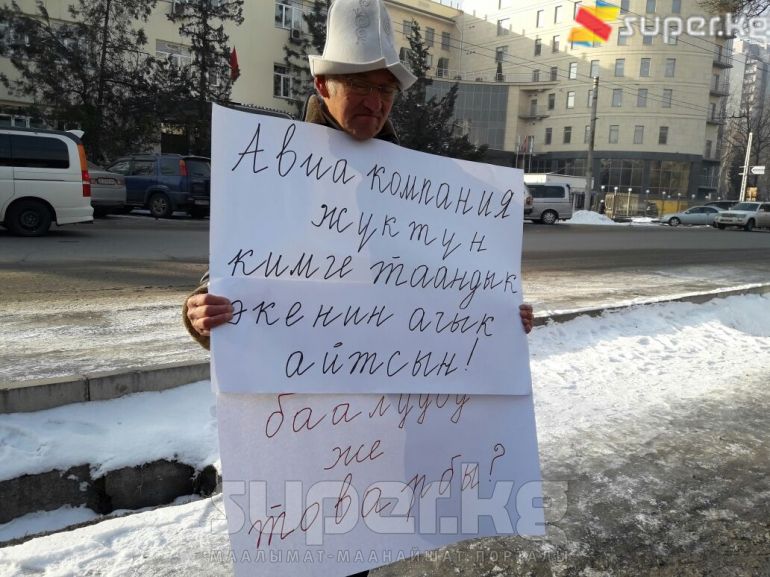 super.kg
Авиа компания
жуктун
кимге таандык
экенин ачык
айтсын!
баалуубу
же
товарбы?
super.kg
МААЛЫМАТ-МААНАЙШАТ ПОРТАЛЫ